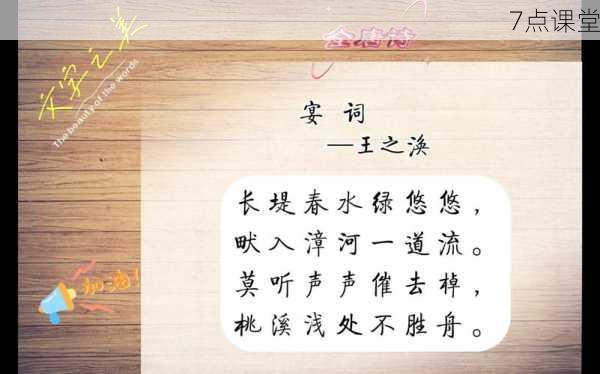 7点课堂
全唐诗
文字之美
The beauty of the words
宴 词
—王之涣
长堤春水绿悠悠，
畎入漳河一道流。
莫听声声催去棹，
桃溪浅处不胜舟。
加油！